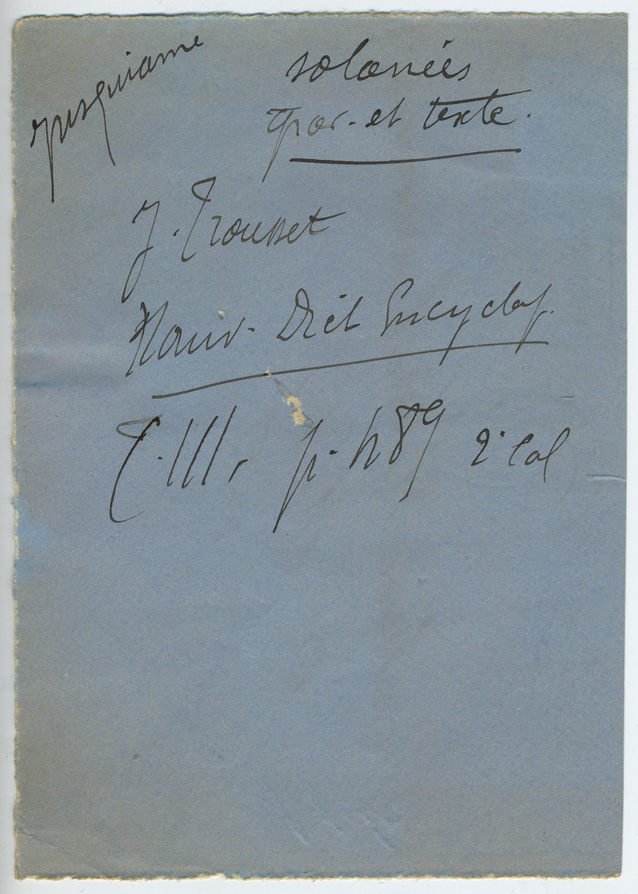 Jusquiame
solanées
grav. et texte.
J. Trousset
Nouv. Dict Encyclop.
T. III, p. 489 2° col